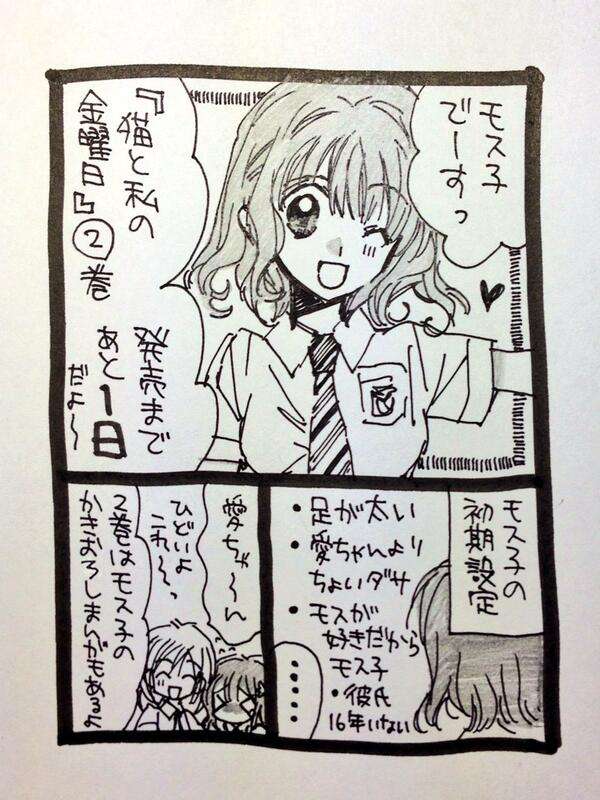 モス子
でーすっ
『猫と私の
金曜日』②巻
発売まで
あと1日
だよ〜
モス子の
初期設定
・足が太い
・愛ちゃんより
ちょいダサ
・モスが
好きだから
モス子
・彼氏
16年いない
・・・・・
愛ちゃ〜ん
ひどいよ
これ〜っ
2巻はモス子の
かきおろしまんがもあるよ